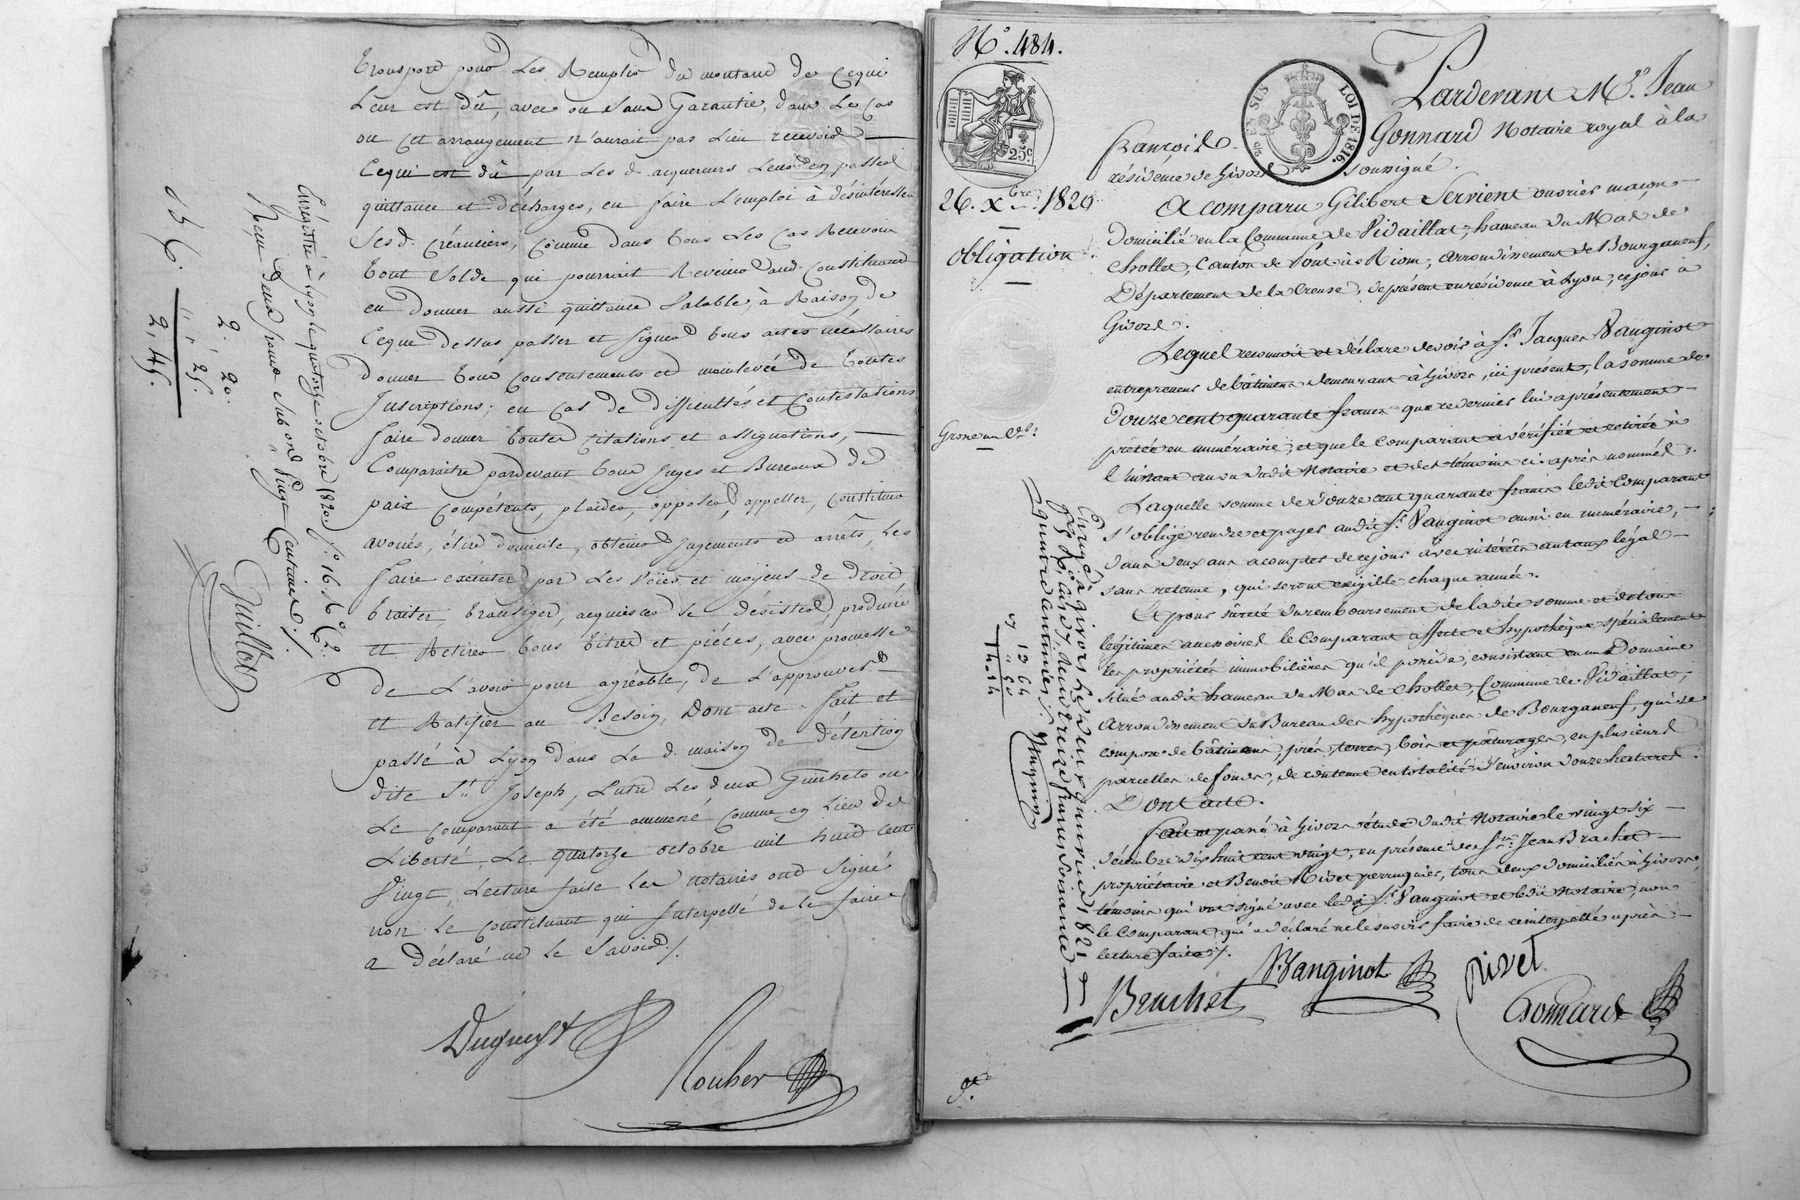 transport pour les Remplir du montant de cequi
Leur est dû, avec ou sans Garantie, dans Le Cas
ou cet arrangement n'aurait pas Lieu recevoir
Cequi est dû par Les d. acquereurs Leur en passer
quittance et décharges, en faire L'emploi à désintéresser
Sesd. Créanciers, Comme dans tous Les Cas Recevoir
tout Solde qui pourrait Revenir aud. Constituant
en Donner aussi quittance Valable, à Raison de
Ceque dessus passer et signer tous actes nécessaires
Donner tous Consentements et mainlevée de toutes
Inscriptions; en Cas de difficultés et Contestations
faire donner toutes Citations et assignations,
Comparaitre pardevant tous Juges et Bureaux de
paix Compétents, plaider, opposer, appeller, Constituer
avoués, élire domicile, obtenir Jugements et arrêts, Les
faire exécuter par Les voies et moyens de droit,
traiter, transiger, acquiescer se désister, produire
et Retirer tous titres et pièces, avec promesse
de L'avoir pour agréable, de L'approuver
et Ratifier au Besoin, Dont acte fait et
passé à Lyon dans La d. maison de détention
dite St. Joseph, Entre Les deux Guichets ou
Le Comparant a été ammené Comme en Lieu de
Liberté, Le quatorze octobre mil huit cent
Vingt, Lecture faite Les notaires ont signé
non Le Constituant qui Interpellé de le faire
a déclaré ne Le Savoir ./.
Enregistré à Lyon le quatorze octobre 1820. f° 16. R° C. 2.
Reçu deux francs sub ond Vingt Centimes ./.
Guillot
2. 20.
" 25.
2,45.
156.
Duguey
Rouher
N°. 484.
25c
EN SUS
LOI DE 1816.
26. Xbre. 1820
obligation
Grosse
Pardevant Me. Jean
François Gonnard Notaire royal à la
résidence de Givors soussigné.
A comparu Gilibert Servient ouvrier maçon
Domicilié en la Commune de Vidaillat, hameau du Mas de
Chollet, Canton de Pont-à-Riom, arrondissement de Bourganeuf,
Département de la Creuse, de présent en résidence à Lyon, ce jour à
Givors.
Lequel reconnoit et déclare devoir à Sr. Jacques Vanginot
entrepreneur de bâtimens demeurant à Givors, ici présent, la somme de
douze cent quarante francs que ce dernier lui a présentement
prêtée en numéraire, et que le Comparant a vérifiée et retirée à
l'instant au vu dudit Notaire et des témoins ci-après nommés.
Laquelle somme de douze cent quarante francs ledit Comparant
s'oblige rendre et payer audit Sr. Vanginot aussi en numéraire,
dans deux ans à compter de ce jour avec intérêts au taux légal
sans retenue, qui seront exigible chaque année.
Et pour sûreté du remboursement de ladite somme et de tous
légitimes accessoires le Comparant affecte et hypothèque spécialement
les propriétés immobilières qu'il possède, consistant en un Domaine
situé audit hameau du Mas de Chollet, Commune de Vidaillat,
Arrondissement du Bureau des hypothèques de Bourganeuf, qui se
compose de bâtimens, prés, terres, bois et pâturages, en plusieurs
parcelles de fonds, de contenue en totalité d'environ douze hectares.
Dont acte.
Fait et passé à Givors étude dudit Notaire le vingt six
décembre dix huit cent vingt, en présence de Srs. Jean Brachet
propriétaire et Benoit Rivet perruquier, tous deux domiciliés à Givors,
témoins qui ont signé avec ledit Sr. Vanginot et ledit Notaire, non
le Comparant qui a déclaré ne le savoir faire de ce interpellé après
lecture faite ./.
Enregé à Givors le deux janvier 1821
reçu treize francs soixante
quatre centimes
13 64
Brachet
Vanginot
Rivet
Gonnard